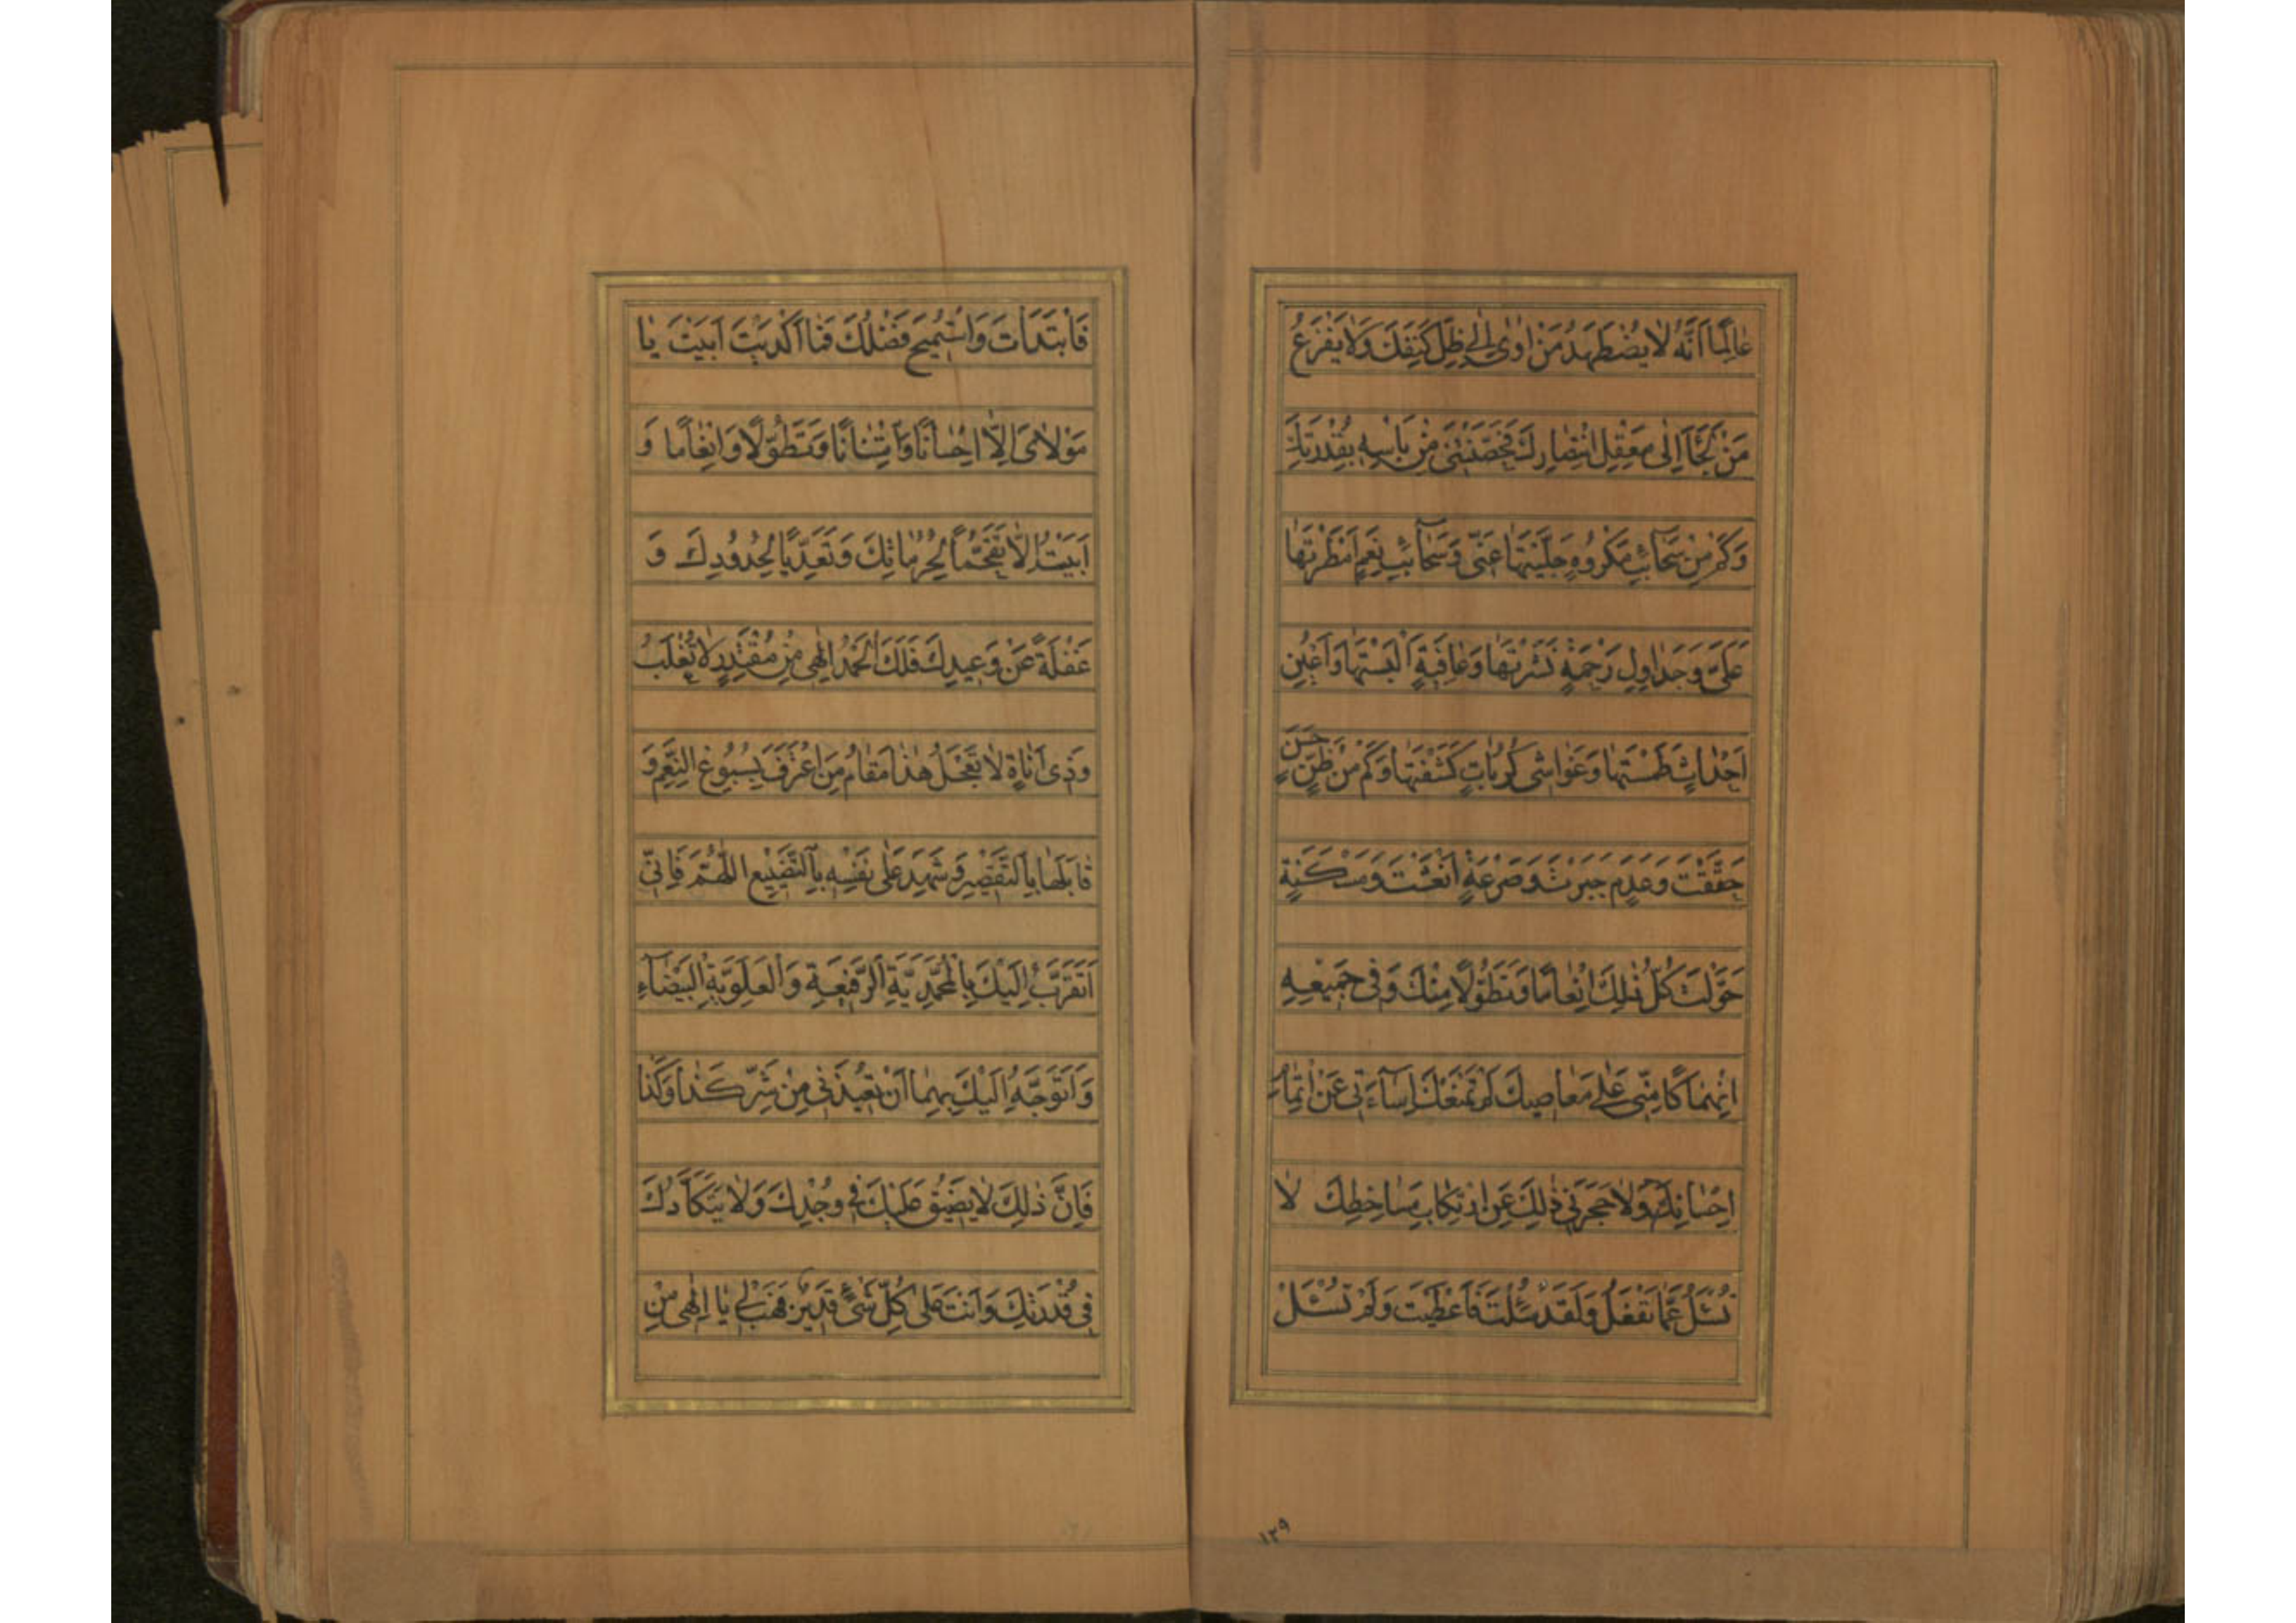 عٰالِمًا اَنَّهُ لٰا يُضْطَهَدُ مَنْ اَوٰى اِلٰى ظِلِّ كَنَفِكَ وَلٰا يَفْزَعُ
مَنْ لَجَاَ اِلٰى مَعْقِلِ انْتِصٰارِكَ فَحَصَّنْتَنى مِنْ بَاْسِهِ بِقُدْرَتِكَ
وَكَمْ مِنْ سَحٰائِبِ مَكْرُوهٍ جَلَّيْتَهٰا عَنّى وَسَحٰائِبِ نِعَمٍ اَمْطَرْتَهٰا
عَلَىَّ وَجَدٰاوِلِ رَحْمَةٍ نَشَرْتَهٰا وَعٰافِيَةٍ اَلْبَسْتَهٰا وَاَعْيُنِ
اَحْدٰاثٍ طَمَسْتَهٰا وَغَوٰاشى كُرُبٰاتٍ كَشَفْتَهٰا وَكَمْ مِنْ ظَنٍّ حَسَنٍ
حَقَّقْتَ وَعَدَمٍ جَبَرْتَ وَصَرْعَةٍ اَنْعَشْتَ وَمَسْكَنَةٍ
حَوَّلْتَ كُلُّ ذٰلِكَ اِنْعٰامًا وَتَطَوُّلًا مِنْكَ وَفى جَميعِهِ
اِنْهِمٰاكًا مِنّى عَلٰى مَعٰاصيكَ لَمْ تَمْنَعْكَ اِسٰآءَتى عَنْ اِتْمٰامِ
اِحْسٰانِكَ وَلٰا حَجَرَنى ذٰلِكَ عَنِ ارْتِكٰابِ مَسٰاخِطِكَ لٰا
تُسْئَلُ عَمّٰا تَفْعَلُ وَلَقَدْ سُئِلْتَ فَاَعْطَيْتَ وَلَمْ تُسْئَلْ
١٢٩
فَابْتَدَاْتَ وَاسْتُميحَ فَضْلُكَ فَمٰا اَكْدَيْتَ اَبَيْتَ يٰا
مَوْلٰاىَ اِلّٰا اِحْسٰانًا وَامْتِنٰانًا وَتَطَوُّلًا وَاِنْعٰامًا وَ
اَبَيْتُ اِلّٰا تَقَحُّمًا لِحُرُمٰاتِكَ وَتَعَدِّيًا لِحُدُودِكَ وَ
غَفْلَةً عَنْ وَعيدِكَ فَلَكَ الْحَمْدُ اِلٰهى مِنْ مُقْتَدِرٍ لٰا يُغْلَبُ
وَذى اَنٰاةٍ لٰا تَعْجَلُ هٰذٰا مَقٰامُ مَنِ اعْتَرَفَ بِسُبُوغِ النِّعَمِ وَ
قٰابَلَهٰا بِالتَّقْصيرِ وَشَهِدَ عَلٰى نَفْسِهِ بِالتَّضْييعِ اللّٰهُمَّ فَاِنّى
اَتَقَرَّبُ اِلَيْكَ بِالْمُحَمَّدِيَّةِ الرَّفيعَةِ وَالْعَلَوِيَّةِ الْبَيْضٰآءِ
وَاَتَوَجَّهُ اِلَيْكَ بِهِمٰا اَنْ تُعيذَنى مِنْ شَرِّ كَذٰا وَكَذٰا
فَاِنَّ ذٰلِكَ لٰا يَضيقُ عَلَيْكَ فى وُجْدِكَ وَلٰا يَتَكَاَّدُكَ
فى قُدْرَتِكَ وَاَنْتَ عَلٰى كُلِّ شَىْءٍ قَديرٌ فَهَبْ لى يٰا اِلٰهى مِنْ